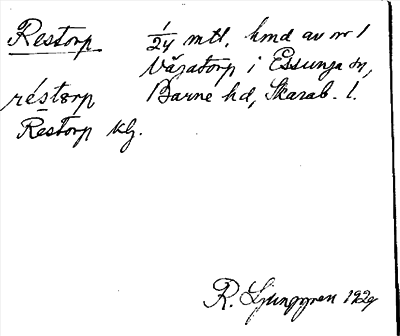 Restorp 1/24 mtl, hmd av nr 1
Våsatorp i Essunga sn,
réstørp Barne hd, Skarab. l.
Restorp kg.
R. Ljunggren 1929